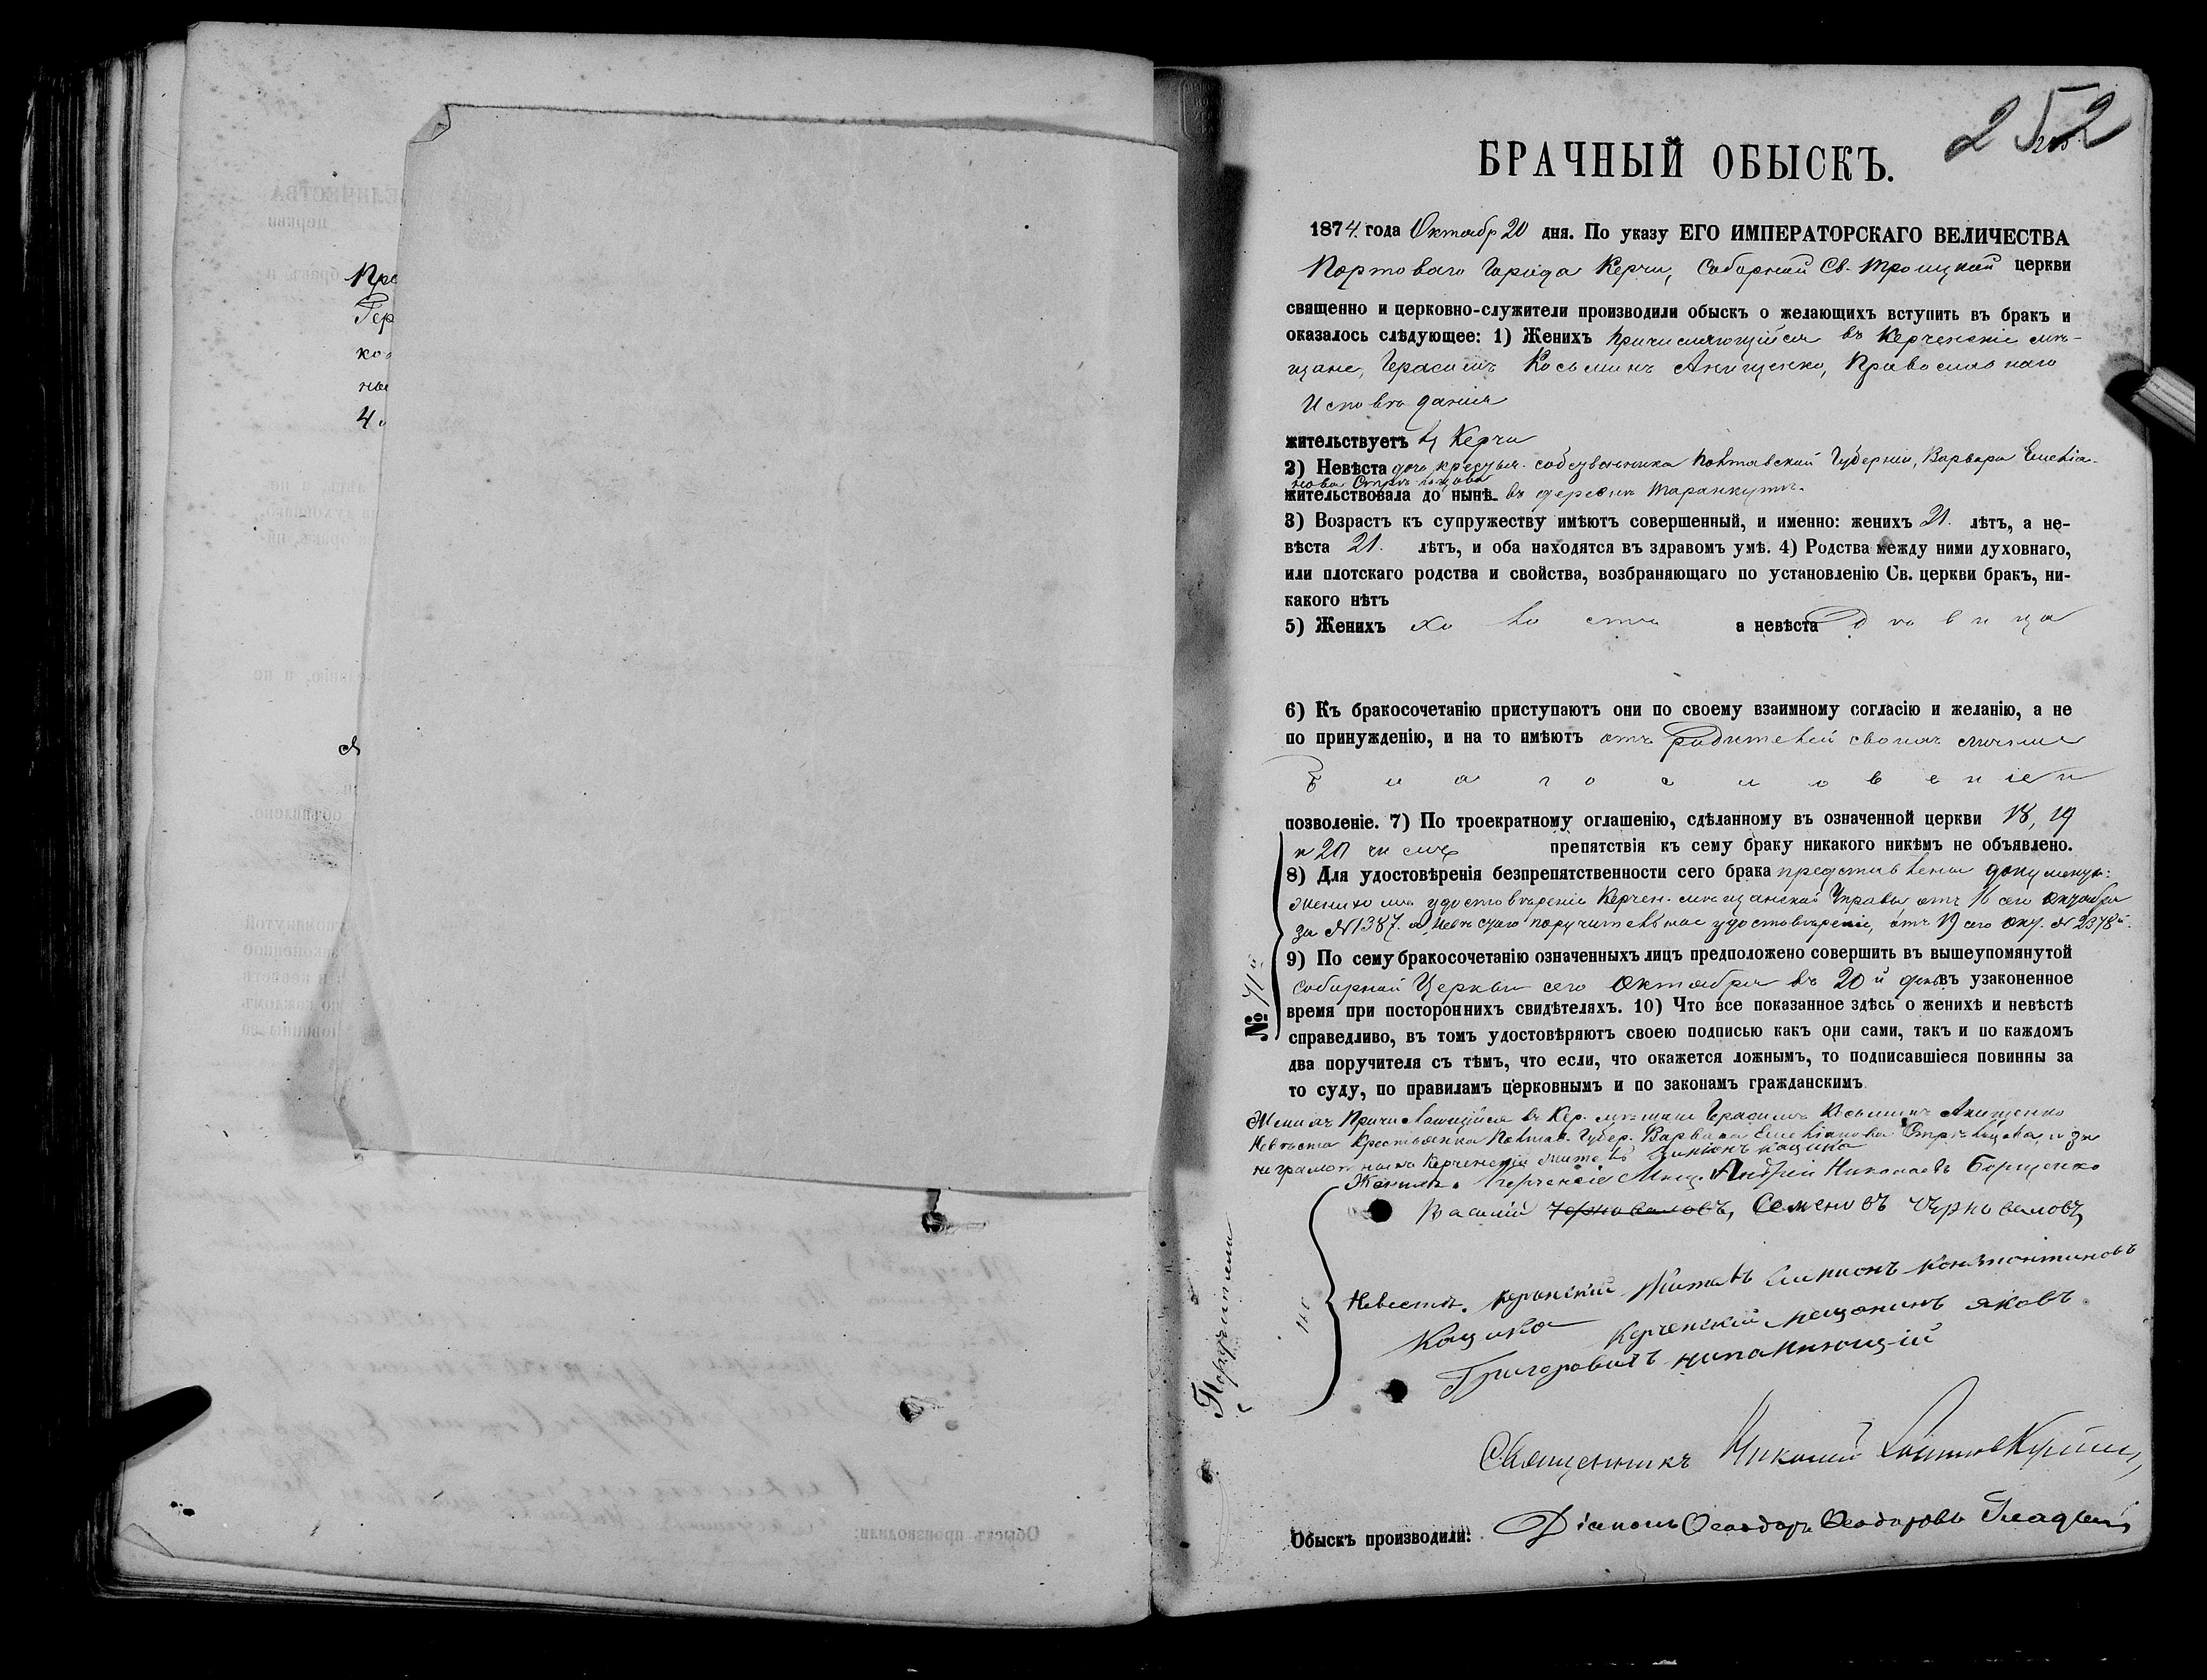 Пре
Гер
ко
ны
4
252
БРАЧНЫЙ ОБЫСКЪ.
1874. года Октябр 20 дня. По указу ЕГО ИМПЕРАТОРСКАГО ВЕЛИЧЕСТВА
Портоваго Города Керчи, Соборной Св. Троицкой церкви
священно и церковно-служители производили обыскъ о желающихъ вступить въ бракъ и
оказалось слѣдующее: 1) Женихъ причисляющійся въ Керченскіе мѣ-
щане, Герасимъ Косьминъ Анищенко, Православнаго
Исповѣданія
жительствуетъ въ Керчи
2) Невѣста дочь крестья. собственника Полтавской Губерніи, Варвара Емелья-
нова Стрѣльцова
жительствовала до нынѣ въ деревнѣ Таранкутѣ.
3) Возрастъ къ супружеству имѣютъ совершенный, и именно: женихъ 21. лѣтъ, а не-
вѣста 21. лѣтъ, и оба находятся въ здравомъ умѣ. 4) Родства между ними духовнаго,
или плотскаго родства и свойства, возбраняющаго по установленію Св. церкви бракъ, ни-
какого нѣтъ
5) Женихъ холостъ а невѣста Дѣвица
6) Къ бракосочетанію приступаютъ они по своему взаимному согласію и желанію, а не
по принужденію, и на то имѣютъ отъ Родителей своихъ
Благословеніе и
позволеніе. 7) По троекратному оглашенію, сдѣланному въ означенной церкви 18, 19
и 20 чиселъ препятствія къ сему браку никакого никѣмъ не объявлено.
8) Для удостовѣренія безпрепятственности сего брака представлены документы:
Женихомъ удостовѣреніе Керчен. мѣщанской Управы отъ 16 сего октября
за № 1387. а, невѣстою поручительное удостовѣреніе, отъ 19 сего окт. № 2378й.
9) По сему бракосочетанію означенныхъ лицъ предположено совершить въ вышеупомянутой
соборной Церкви сего Октября въ 20й день въ узаконенное
время при постороннихъ свидѣтеляхъ. 10) Что все показанное здѣсь о женихѣ и невѣстѣ
справедливо, въ томъ удостовѣряютъ своею подписью какъ они сами, такъ и по каждомъ
два поручителя съ тѣмъ, что если, что окажется ложнымъ, то подписавшіеся повинны за
то суду, по правиламъ церковнымъ и по законамъ гражданскимъ
№ 71й
Женихъ Причисляющійся въ Кер. мѣщане Герасимъ Косьминъ Анищенко
Невѣста Крестьянка Полтав. Губер. Варвара Емельянова Стрѣльцова, и за
неграмотныхъ Керченскій житель
Поручители
по
Жениха. Керченскіе Мещ. Андрей Николаевъ Борщенко
Василій Черноваловъ, Семеновъ Черноваловъ
Невесты. Керчнскій Житель Симионъ Константиновъ
Кащика Керченскій мещанинъ Яковъ
Григоровичъ
Священникъ Николай
Обыскъ производили: Діаконъ Ѳеодоръ Ѳеодоровъ Гладкій
Обыскъ производили: